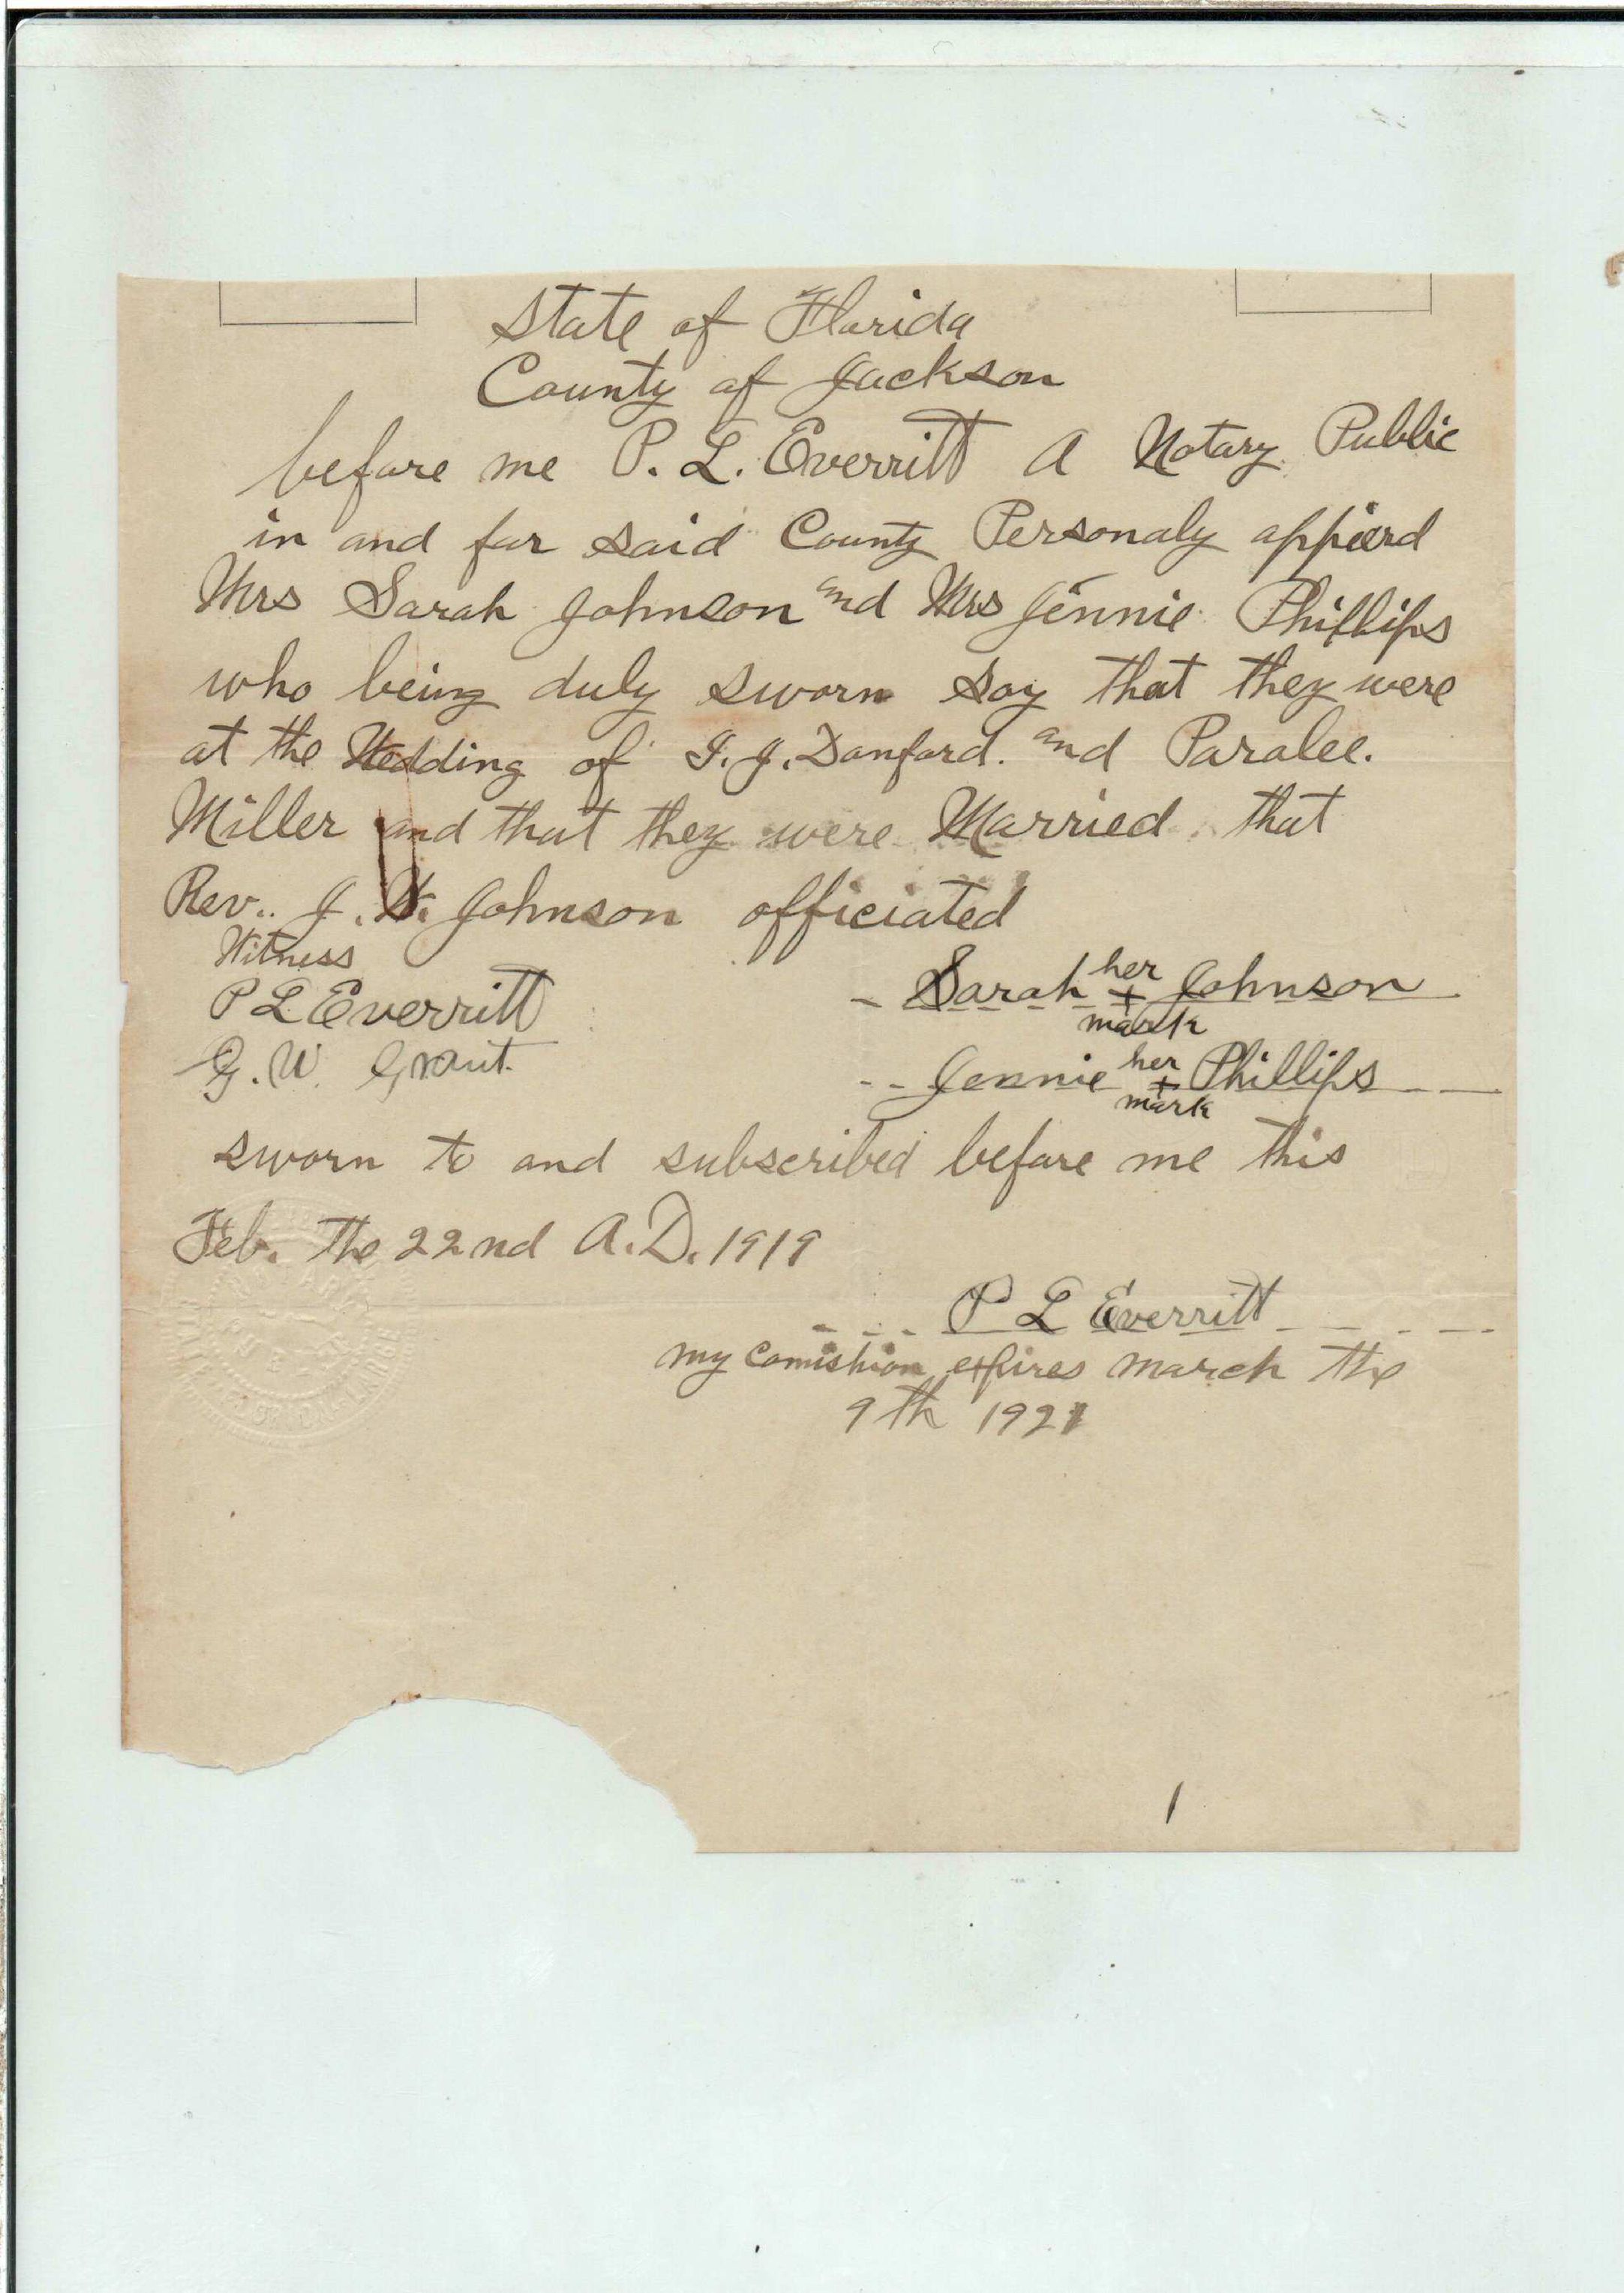 State of Florida
County of Jackson
before me P. L. Everritt A Notary Public
in and for said County Personaly appierd
Mrs Sarah Johnson and Mrs Jennie Phillips
who being duly sworn say that they were
at the Wedding of I. J. Danford. and Paralee.
Miller and that they were Married that
Rev.. J. W. Johnson officiated
Witness
P L Everritt
G. W. Grant.
Sarah her + mark Johnson
Jennie her + mark Phillips
sworn to and subscribed before me this
Feb. the 22nd A.D. 1919
P L Everritt
my comishion expires march the
9th 1921
1